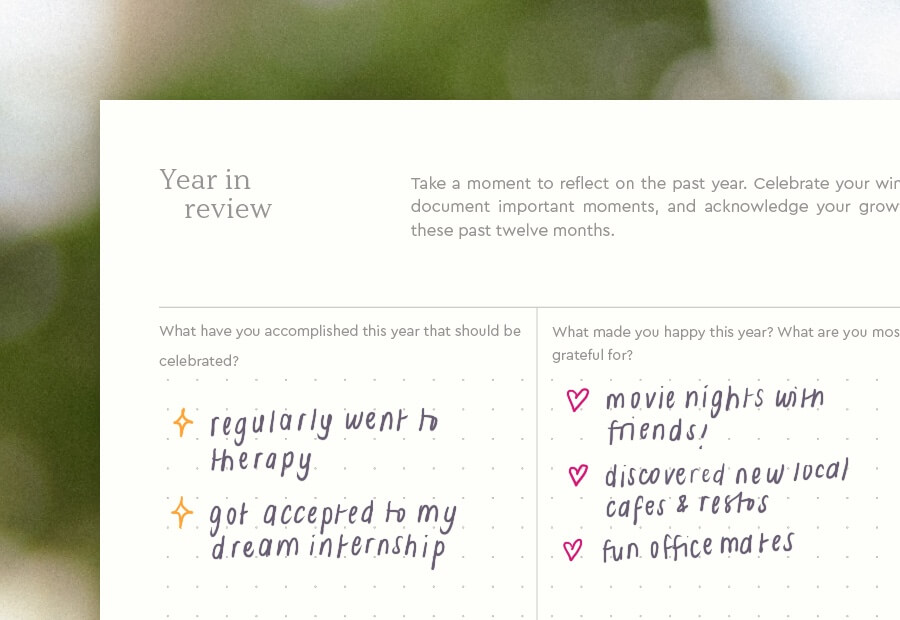 Year in
review
Take a moment to reflect on the past year. Celebrate your
document important moments, and acknowledge your
these past twelve months.
What have you accomplished this year that should be
celebrated?
regularly went to
therapy
got accepted to my
dream internship
What made you happy this year? What are you
grateful for?
movie nights with
friends!
discovered new local
cafes & restos
fun office mates